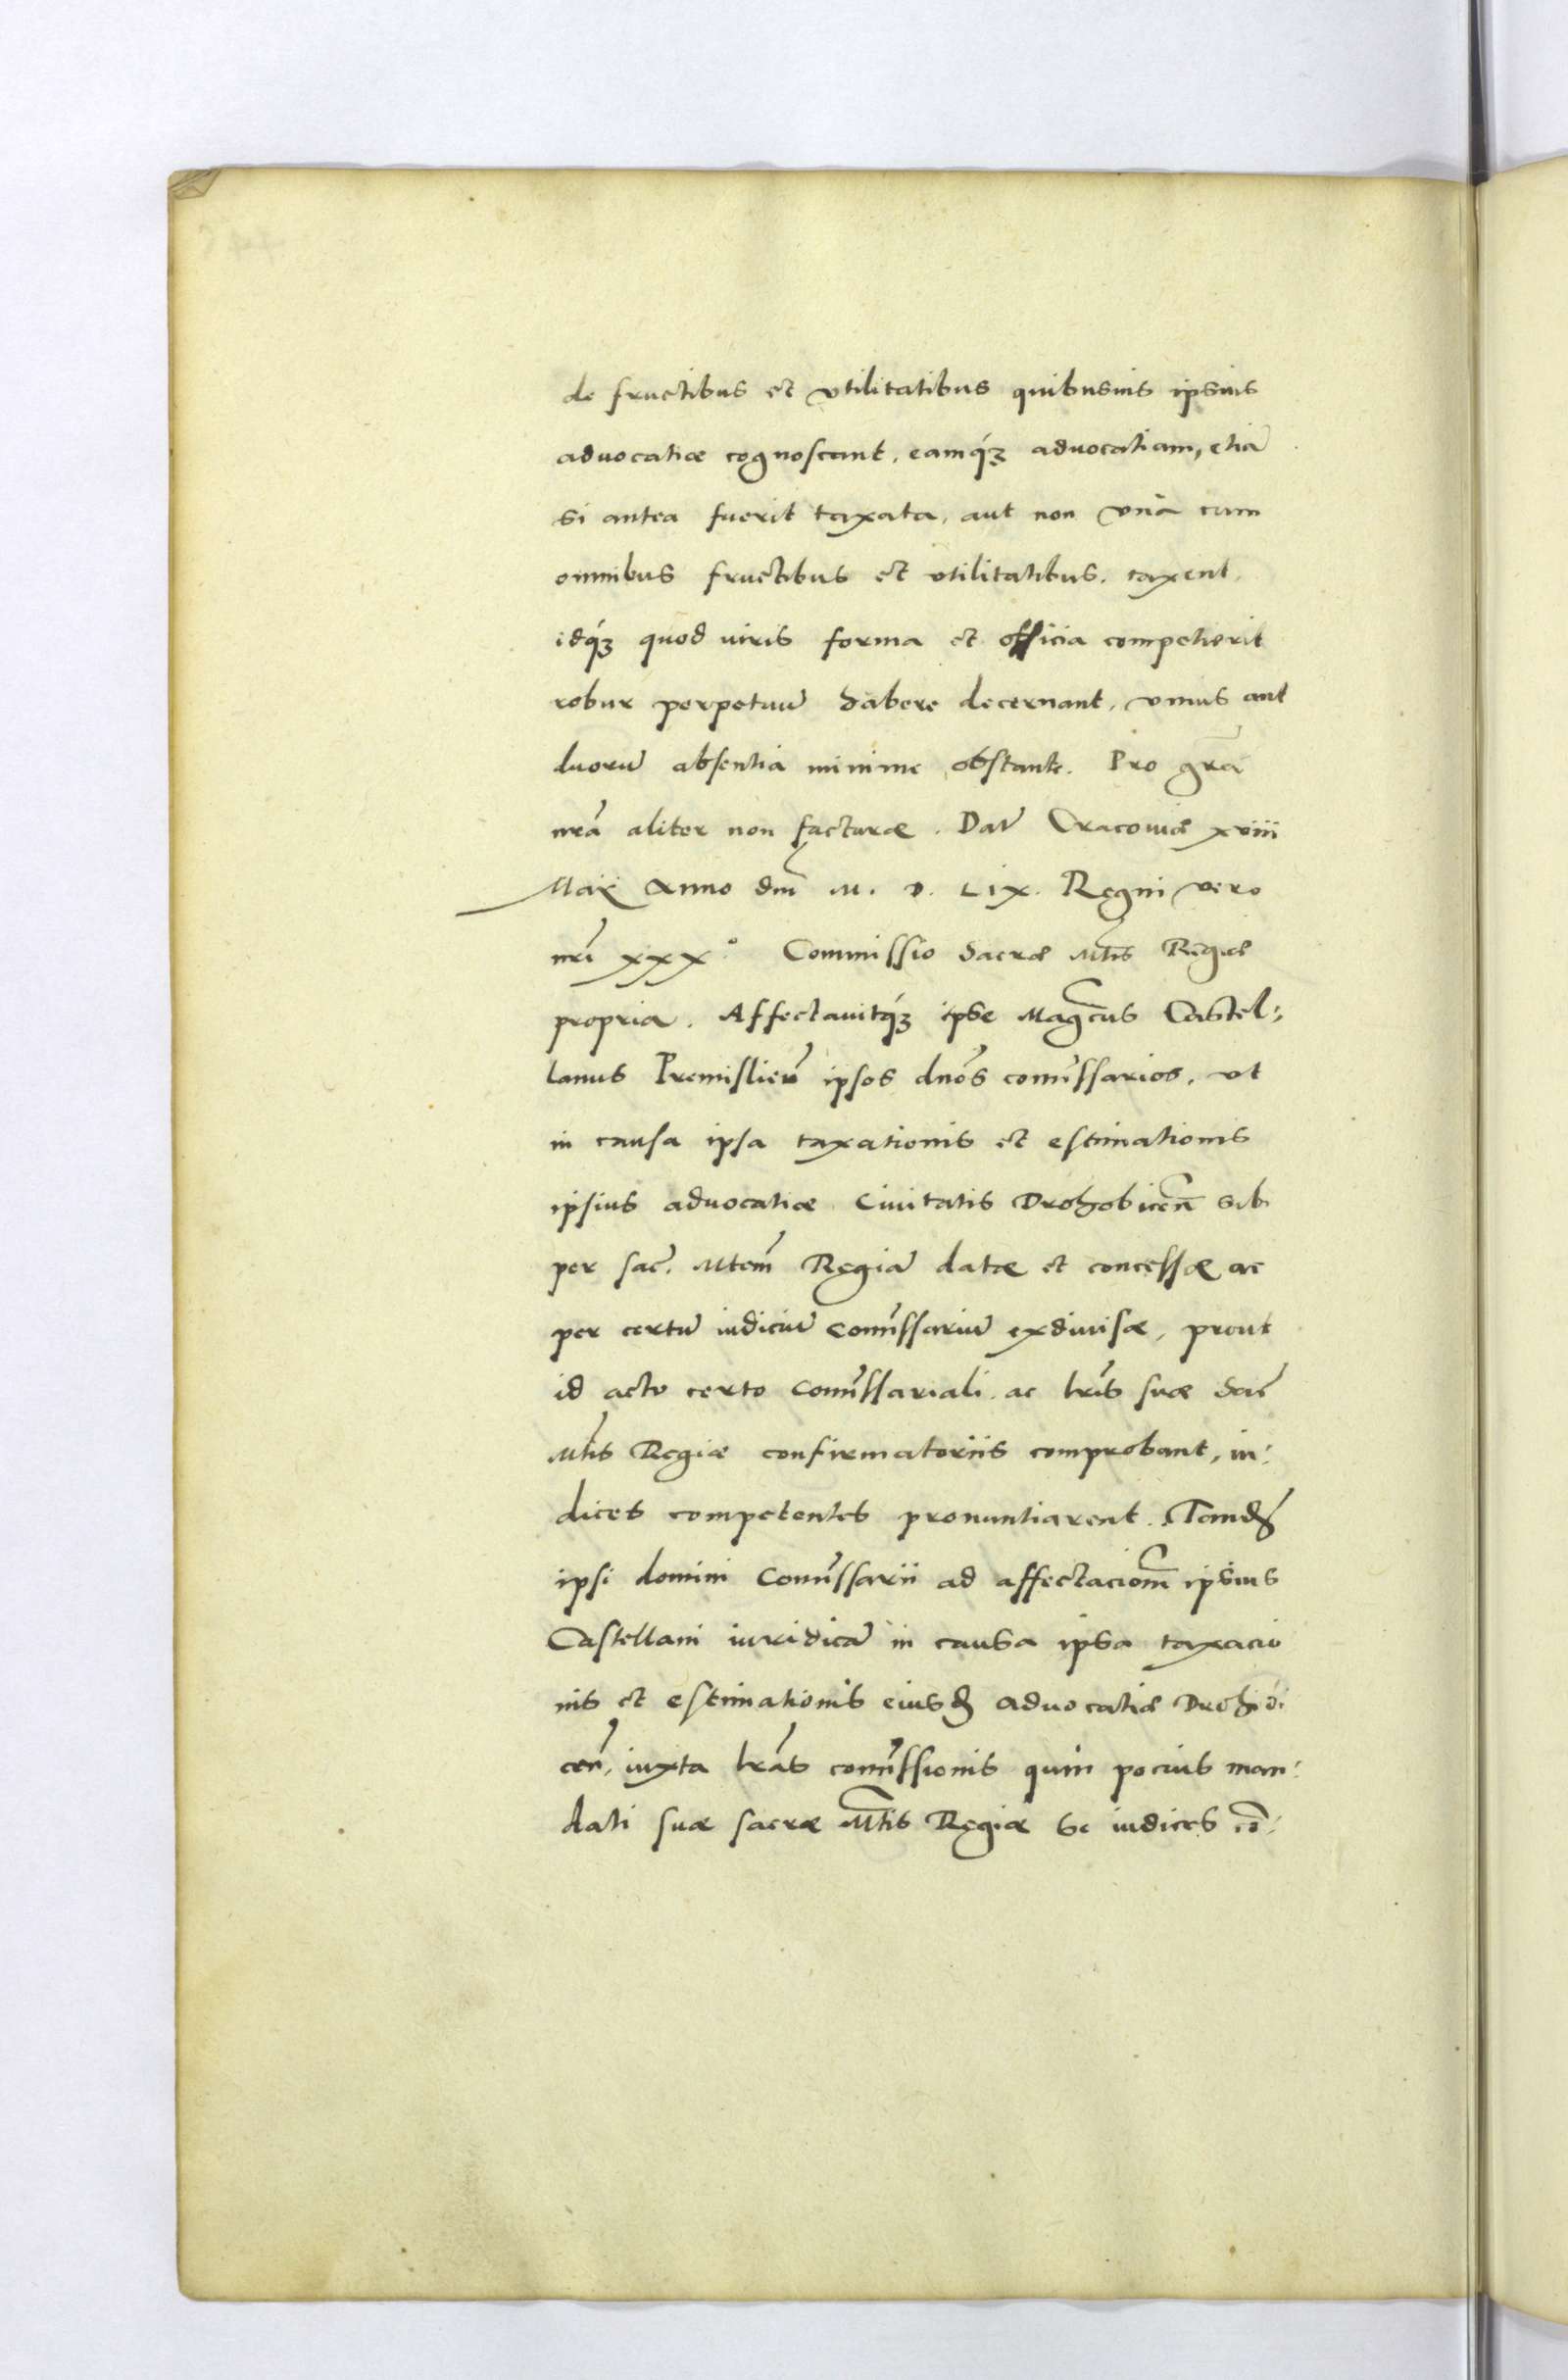 de fructibus et vtilitatibus quibusuis ipsius
aduocatiæ cognoscant, eamq́ꝫ aduocatiam, etiã
si antea fuerit taxata, aut non vnà cum
omnibus fructibus et vtilitatibus, taxent,
idq́ꝫ quod iuris forma et officia competierit
robur perpetuũ habere decernant, vnius aut
duorũ absentia minime obstante. Pro grã
nrã aliter non facturæ. Dat̃ Cracouiæ xviii
Maii Anno dni̅ M. D. Lix. Regni vero
nri̅ xxx° Commissio Sacræ Mtis̃ Regiæ
propria. Affectauitq́ꝫ ipse Mag̃cus Castel⸗
lanus Premislieñ ipsos dnõs com̃issarios, vt
in causa ipsa taxationis et estimationis
ipsius aduocatiæ Ciuitatis Drohobiceñ sib
per sac̃. Mtem̃ Regiã datæ et concessæ ac
per certũ iudiciũ Com̃issariũ exdiuisæ, prout
id acto certo Com̃issariali ac lris̃ suæ Sac̃
Mtis̃ Regiæ confirmatoriis comprobant, iu⸗
dices competentes pronuntiarent. Tandẽ
ipsi domini Com̃issarii ad affectacionm̃ ipsius
Castellani iuridicã in causa ipsa taxacio
nis et estimationis eiusd̃ aduocatiæ Drohobi
ceñ, iuxta lrãs com̃issionis quin pocius man⸗
dati suæ sacræ Mtis̃ Regiæ se iudices cõ⸗